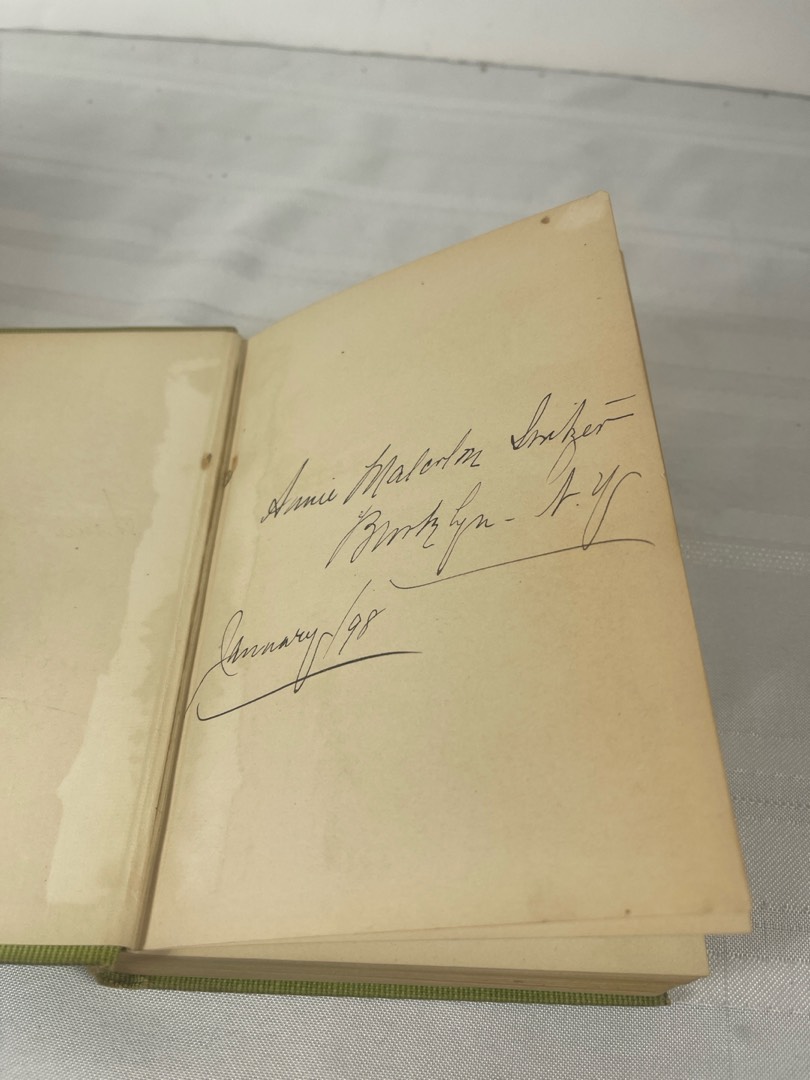 Annie Malcolm
Brooklyn - N. Y.
January /98